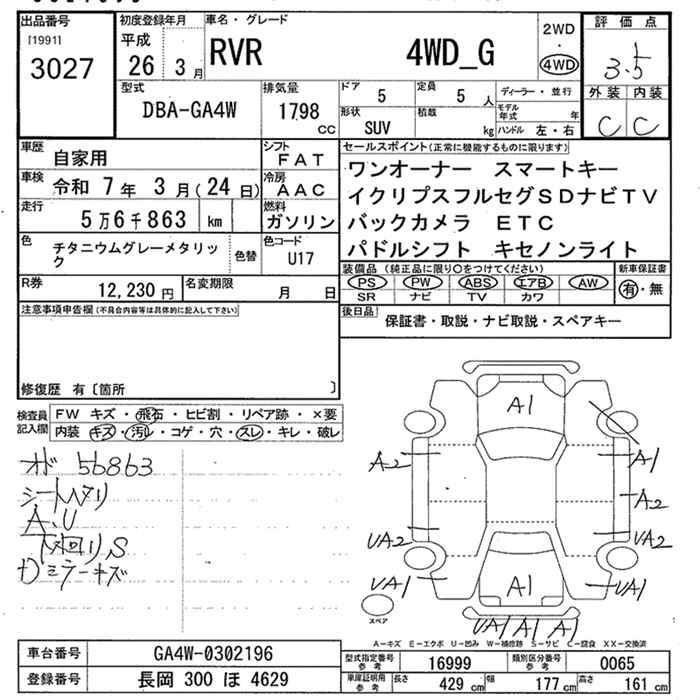 出品番号
[1991]
3027
初度登録年月
平成
26 3月
車名・グレード
RVR 4WD_G
2WD
・
4WD
評価点
3.5
外装 内装
C C
型式
DBA-GA4W
排気量
1798
cc
ドア
5
定員
5 人
形状
SUV
積載
kg
ディーラー・並行
モデル年式 年
ハンドル 左・右
車歴
自家用
シフト
FAT
車検
令和 7年 3月(24日)
冷房
AAC
走行
5万6千863 km
燃料
ガソリン
色
チタニウムグレーメタリッ
ク
色替
色コード
U17
R券
12,230円
名変期限
月 日
セールスポイント(正常に機能するものに限ります)
ワンオーナー スマートキー
イクリプスフルセグSDナビTV
バックカメラ ETC
パドルシフト キセノンライト
装備品(純正品に限り○をつけてください)
新車保証書
PS PW ABS エアB AW
SR ナビ TV カワ
有・無
後日品
保証書・取説・ナビ取説・スペアキー
注意事項申告欄(不具合内容等は具体的に記入して下さい)
修復歴 有〔箇所 〕
検査員
記入欄
FW キズ・飛石・ヒビ割・リペア跡・×要
内装 キズ・汚レ・コゲ・穴・スレ・キレ・破レ
オド 56863
シートヘタリ
A、U
下回りS
カミラーキズ
A1
A2
A1
A2
UA2
UA2
UA1
A1
UA1
UA1 A1 A1
スペア
A－キズ E－エクボ U－凹み W－補修跡 S－サビ C－腐食 XX－交換済
車台番号
GA4W-0302196
登録番号
長岡 300 ほ 4629
型式指定番号
参考
16999
類別区分番号
参考
0065
車庫証明用
参考
長さ 429 cm
幅 177 cm
高さ 161 cm